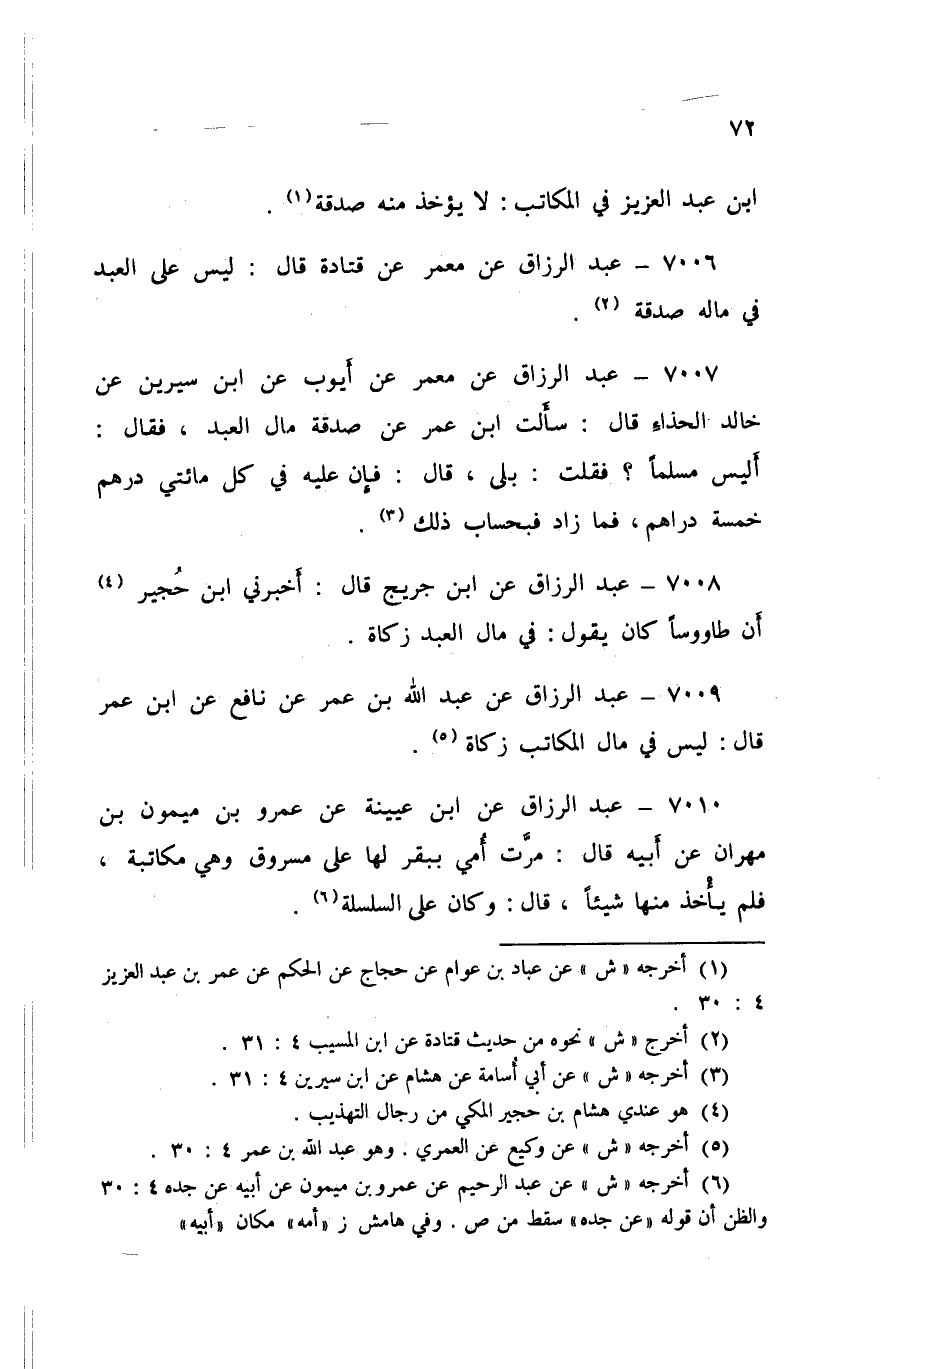 ٧٢
ابن عبد العزيز في المكاتب : لا يؤخذ منه صدقة (١) .
٧٠٠٦ – عبد الرزاق عن معمر عن قتادة قال : ليس على العبد
في ماله صدقة (٢) .
٧٠٠٧ – عبد الرزاق عن معمر عن أيوب عن ابن سيرين عن
خالد الحذاء قال : سألت ابن عمر عن صدقة مال العبد ، فقال :
أليس مسلماً ؟ فقلت : بلى ، قال : فإن عليه في كل مائتي درهم
خمسة دراهم ، فما زاد فبحساب ذلك (٣) .
٧٠٠٨ – عبد الرزاق عن ابن جريج قال : أخبرني ابن حُجير (٤)
أن طاووساً كان يقول : في مال العبد زكاة .
٧٠٠٩ – عبد الرزاق عن عبد الله بن عمر عن نافع عن ابن عمر
قال : ليس في مال المكاتب زكاة (٥) .
٧٠١٠ – عبد الرزاق عن ابن عيينة عن عمرو بن ميمون بن
مهران عن أبيه قال : مرَّت أُمي ببقر لها على مسروق وهي مكاتبة ،
فلم يأْخذ منها شيئاً ، قال : وكان على السلسلة (٦) .
(١) أخرجه « ش » عن عباد بن عوام عن حجاج عن الحكم عن عمر بن عبد العزيز
٤ : ٣٠ .
(٢) أخرج « ش » نحوه من حديث قتادة عن ابن المسيب ٤ : ٣١ .
(٣) أخرجه « ش » عن أبي أُسامة عن هشام عن ابن سيرين ٤ : ٣١ .
(٤) هو عندي هشام بن حجير المكي من رجال التهذيب .
(٥) أخرجه « ش » عن وكيع عن العمري . وهو عبد الله بن عمر ٤ : ٣٠ .
(٦) أخرجه « ش » عن عبد الرحيم عن عمرو بن ميمون عن أبيه عن جده ٤ : ٣٠
والظن أن قوله «عن جده» سقط من ص . وفي هامش ز «أمه» مكان «أبيه»